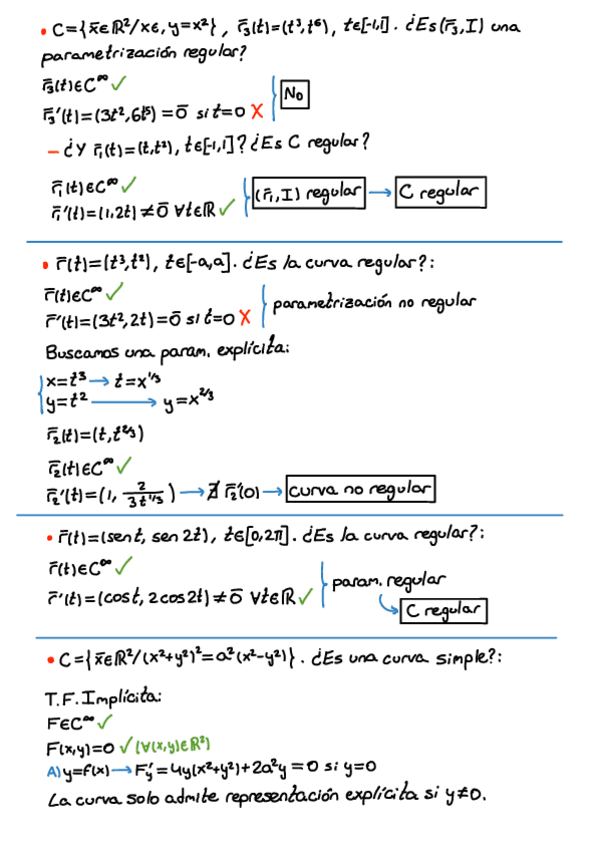 • C={x̄∈ℝ²/x∈, y=x²} , r̄₃(t)=(t³,t⁶) , t∈[-1,1] . ¿Es (r̄₃,I) una
parametrización regular?
r̄₃(t)∈C^∞ ✓
r̄₃'(t)=(3t²,6t⁵)=0̄ si t=0 X
No
– ¿Y r̄₁(t)=(t,t²), t∈[-1,1]? ¿Es C regular?
r̄₁(t)∈C^∞ ✓
r̄₁'(t)=(1,2t)≠0̄ ∀t∈ℝ ✓
(r̄₁,I) regular → C regular
• r̄(t)=(t³,t²), t∈[-a,a]. ¿Es la curva regular?:
r̄(t)∈C^∞ ✓
r̄'(t)=(3t²,2t)=0̄ si t=0 X
parametrización no regular
Buscamos una param. explícita:
x=t³ → t=x^1/3
y=t² → y=x^2/3
r̄₂(t)=(t,t^2/3)
r̄₂(t)∈C^∞ ✓
r̄₂'(t)=(1, 2/3t^1/3) → ∄ r̄₂'(0) → curva no regular
• r̄(t)=(sen t, sen 2t), t∈[0,2π]. ¿Es la curva regular?:
r̄(t)∈C^∞ ✓
r̄'(t)=(cost, 2cos2t)≠0̄ ∀t∈ℝ ✓
param. regular
C regular
• C={x̄∈ℝ²/(x²+y²)²=a²(x²-y²)}. ¿Es una curva simple?:
T.F.Implícita:
F∈C^∞ ✓
F(x,y)=0 ✓ (∀(x,y)∈ℝ²)
A) y=f(x) → F'y=4y(x²+y²)+2a²y=0 si y=0
La curva solo admite representación explícita si y≠0.